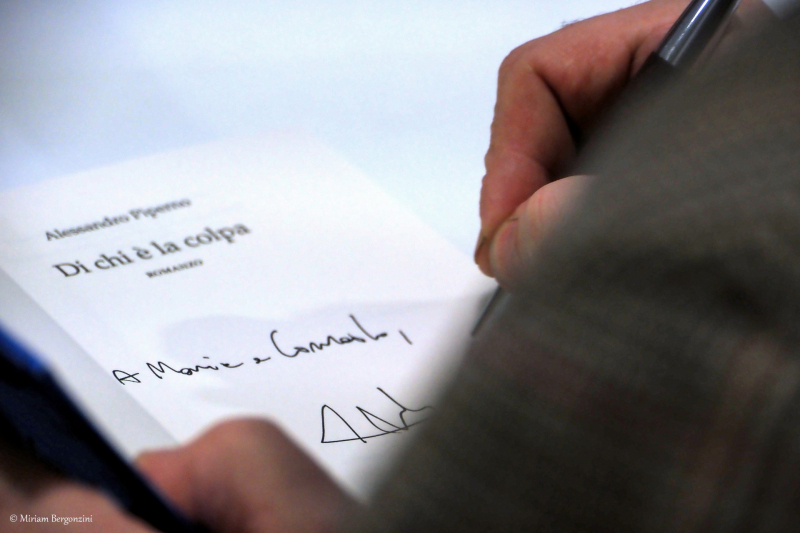 Alessandro Piperno
Di chi è la colpa
ROMANZO
A Maria e
© Miriam Bergonzini